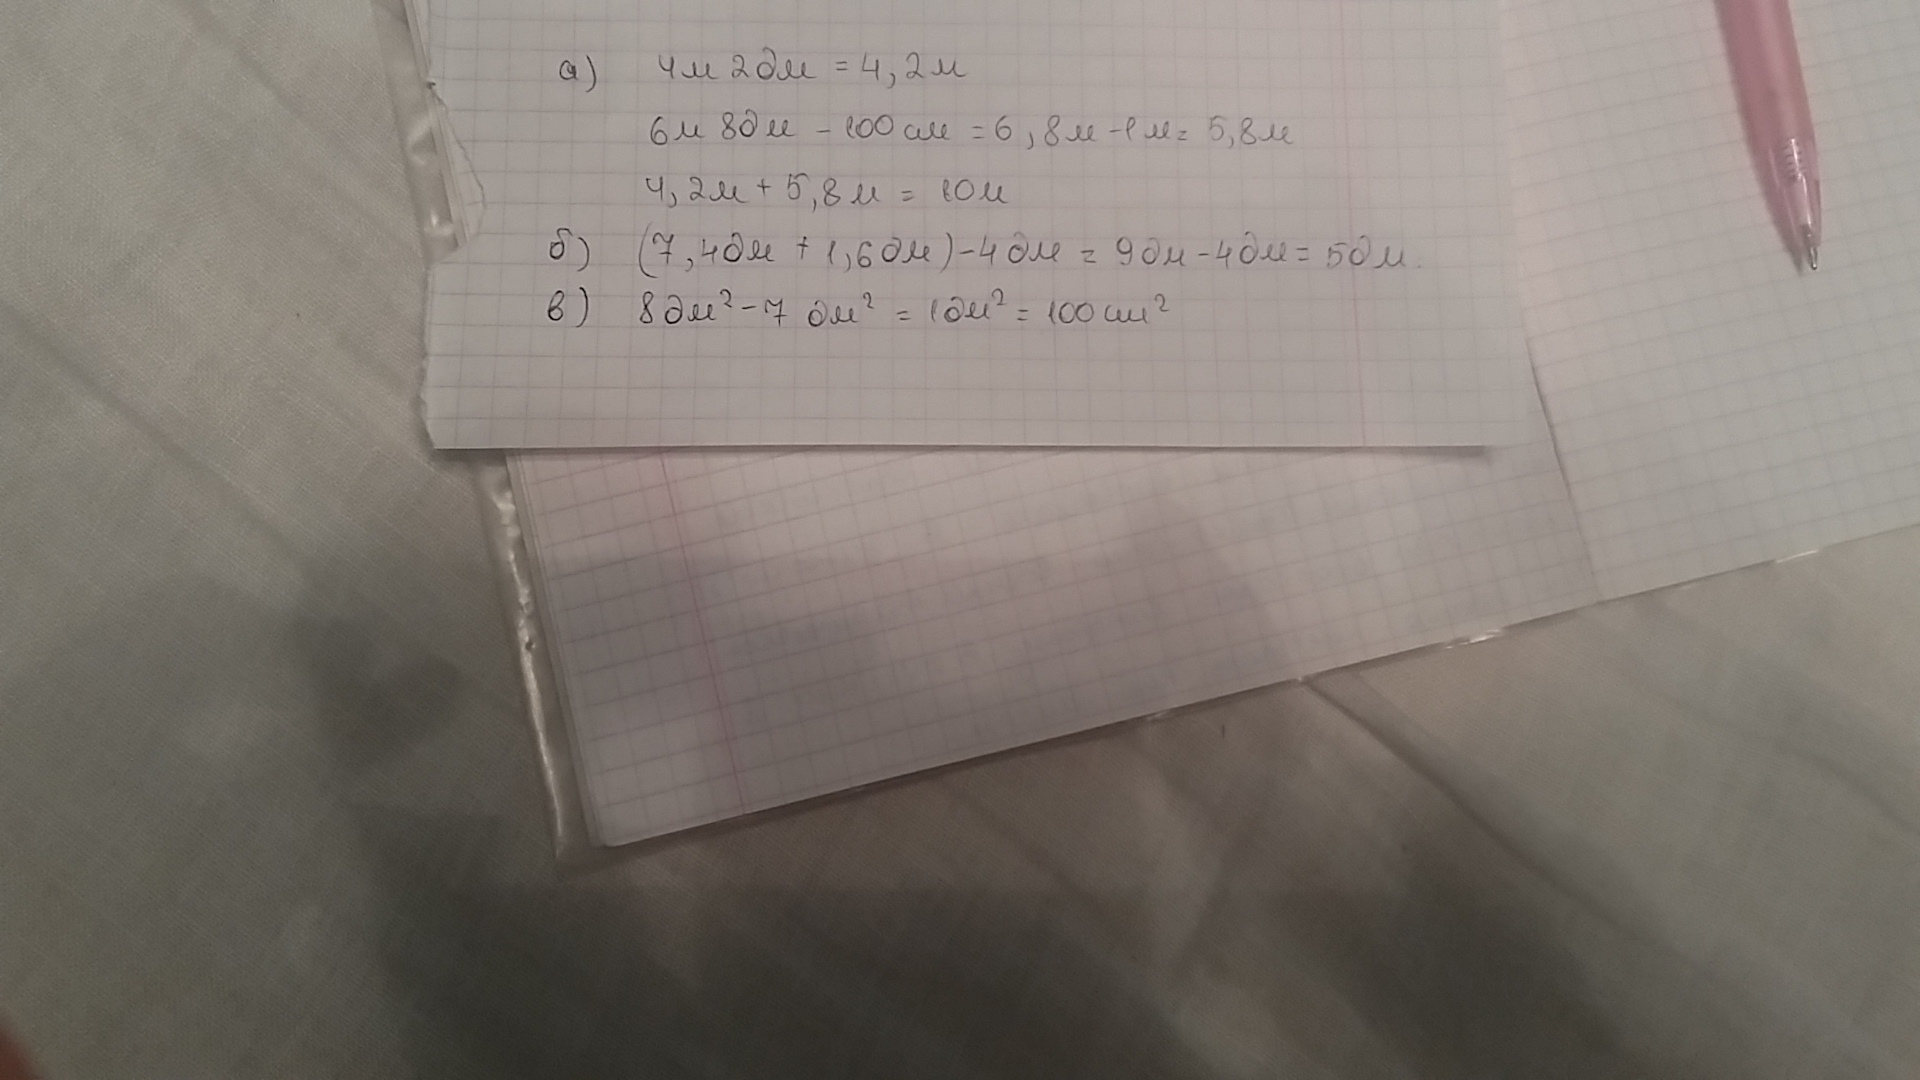 а) 4м 2дм = 4,2м
6м 8дм - 100см = 6,8м - 1м = 5,8м
4,2м + 5,8м = 10м
б) (7,4дм + 1,6дм) - 4дм = 9дм - 4дм = 5дм.
в) 8дм² - 7 дм² = 1дм² = 100см²